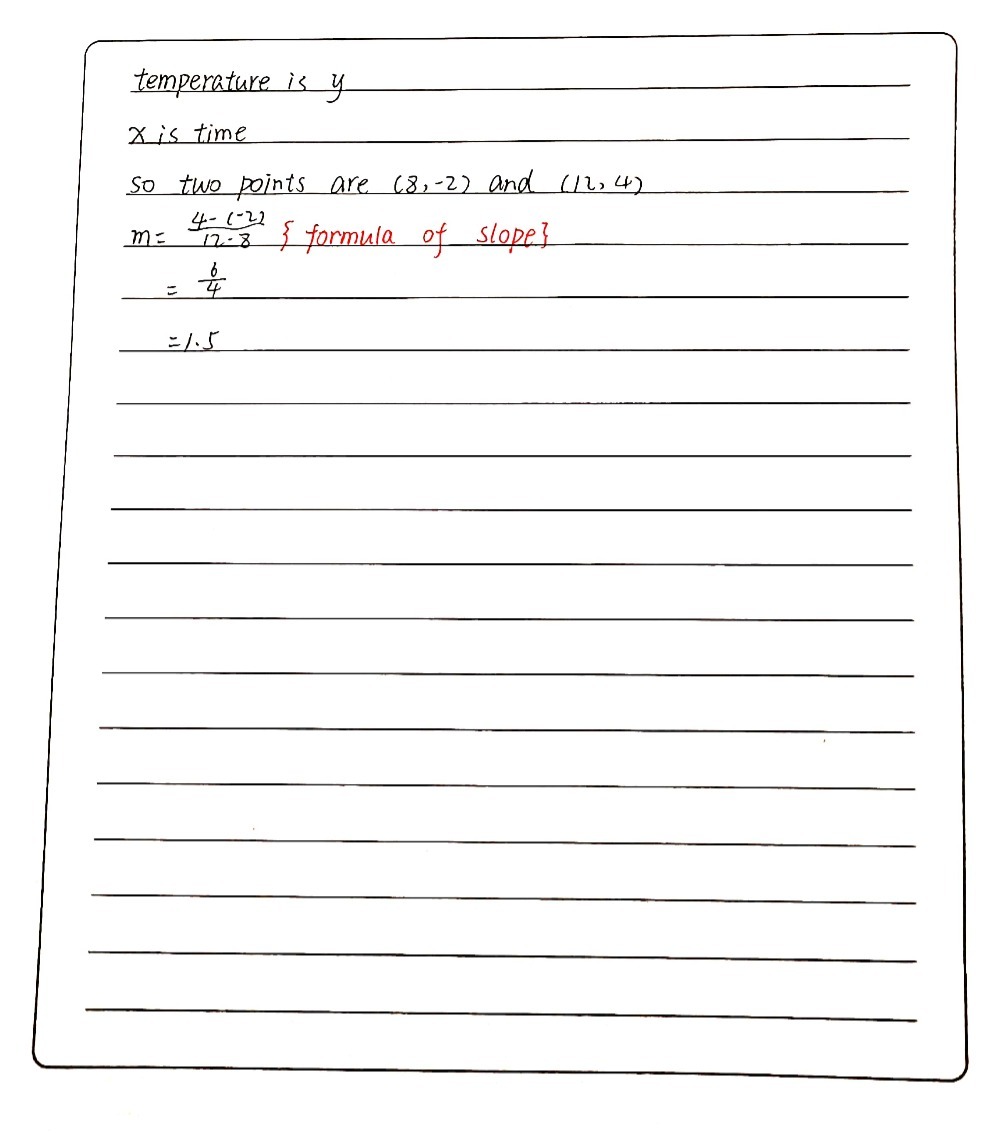 temperature is y
x is time
so two points are (8,-2) and (12,4)
m= \frac{4-(-2)}{12-8} { formula of slope}
= \frac{6}{4}
=1.5